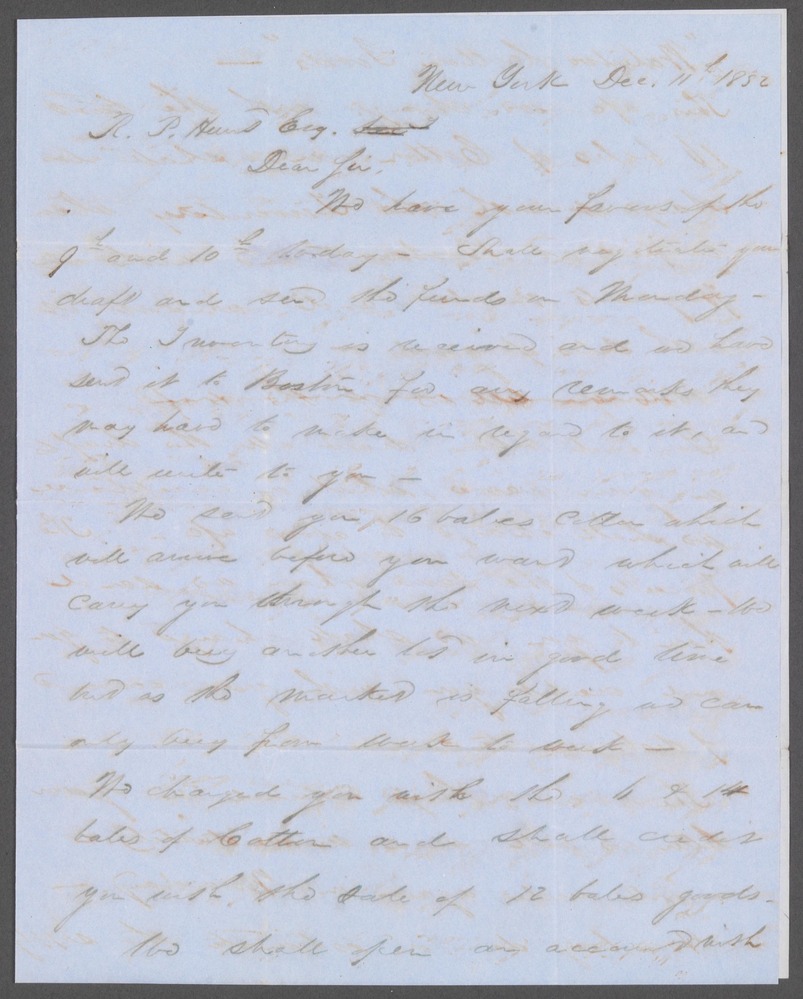 New York Dec. 11th 1852
R. P. Hunt Esq.
Dear Sir,
We have your favors of the
9th and 10th to-day - Shall negotiate your
draft and send the funds on Monday -
The Inventory is received and we have
sent it to Boston for any remarks they
may have to make in regard to it, and
will write to you -
We send you 16 bales Cotton which
will arrive before you want which will
carry you through the next week - We
will buy another lot in good time
but as the market is falling we can
only buy from week to week -
We charged you with the 6 & 14
bales of Cotton and shall credit
you with the sale of 12 bales goods -
We shall open an account with